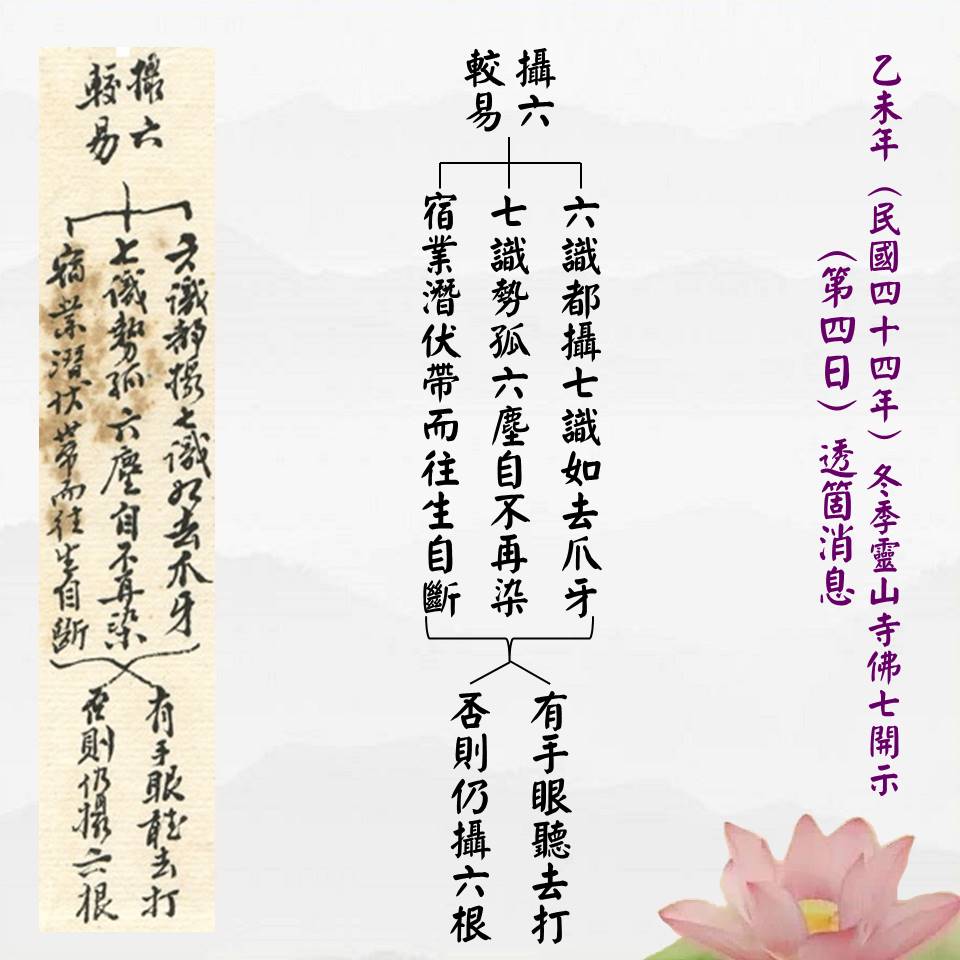 乙未年（民國四十四年）冬季靈山寺佛七開示
（第四日）透箇消息
攝六
較易
六識都攝七識如去爪牙
七識勢孤六塵自不再染
宿業潛伏帶而往生自斷
有手眼聽去打
否則仍攝六根
攝六
較易
六識都攝七識如去爪牙
七識勢孤六塵自不再染
宿業潛伏帶而往生自斷
有手眼聽去打
否則仍攝六根